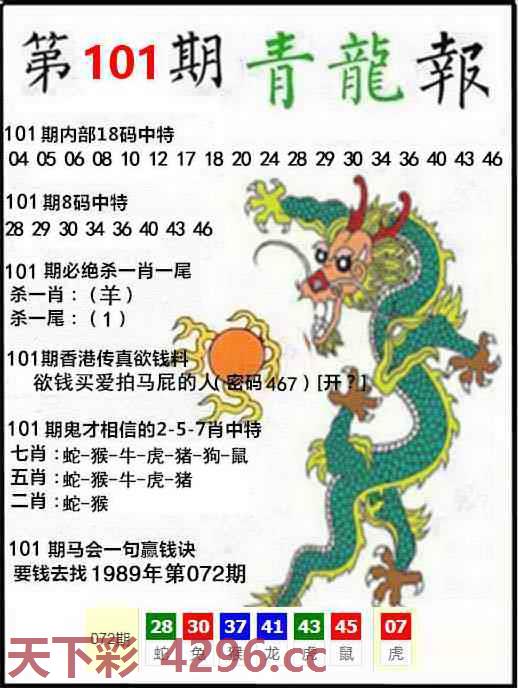 第101期青龍報
101期内部18码中特
04 05 06 08 10 12 17 18 20 24 28 29 30 34 36 40 43 46
101期8码中特
28 29 30 34 36 40 43 46
101期必绝杀一肖一尾
杀一肖：（羊）
杀一尾：（1）
101期香港传真欲钱料
欲钱买爱拍马屁的人(密码467)[开？]
101期鬼才相信的2-5-7肖中特
七肖：蛇-猴-牛-虎-猪-狗-鼠
五肖：蛇-猴-牛-虎-猪
二肖：蛇-猴
101期马会一句赢钱诀
要钱去找1989年第072期
072期 28 30 37 41 43 45 07
蛇 兔 猴 龙 虎 鼠 虎
天下彩 4296.cc